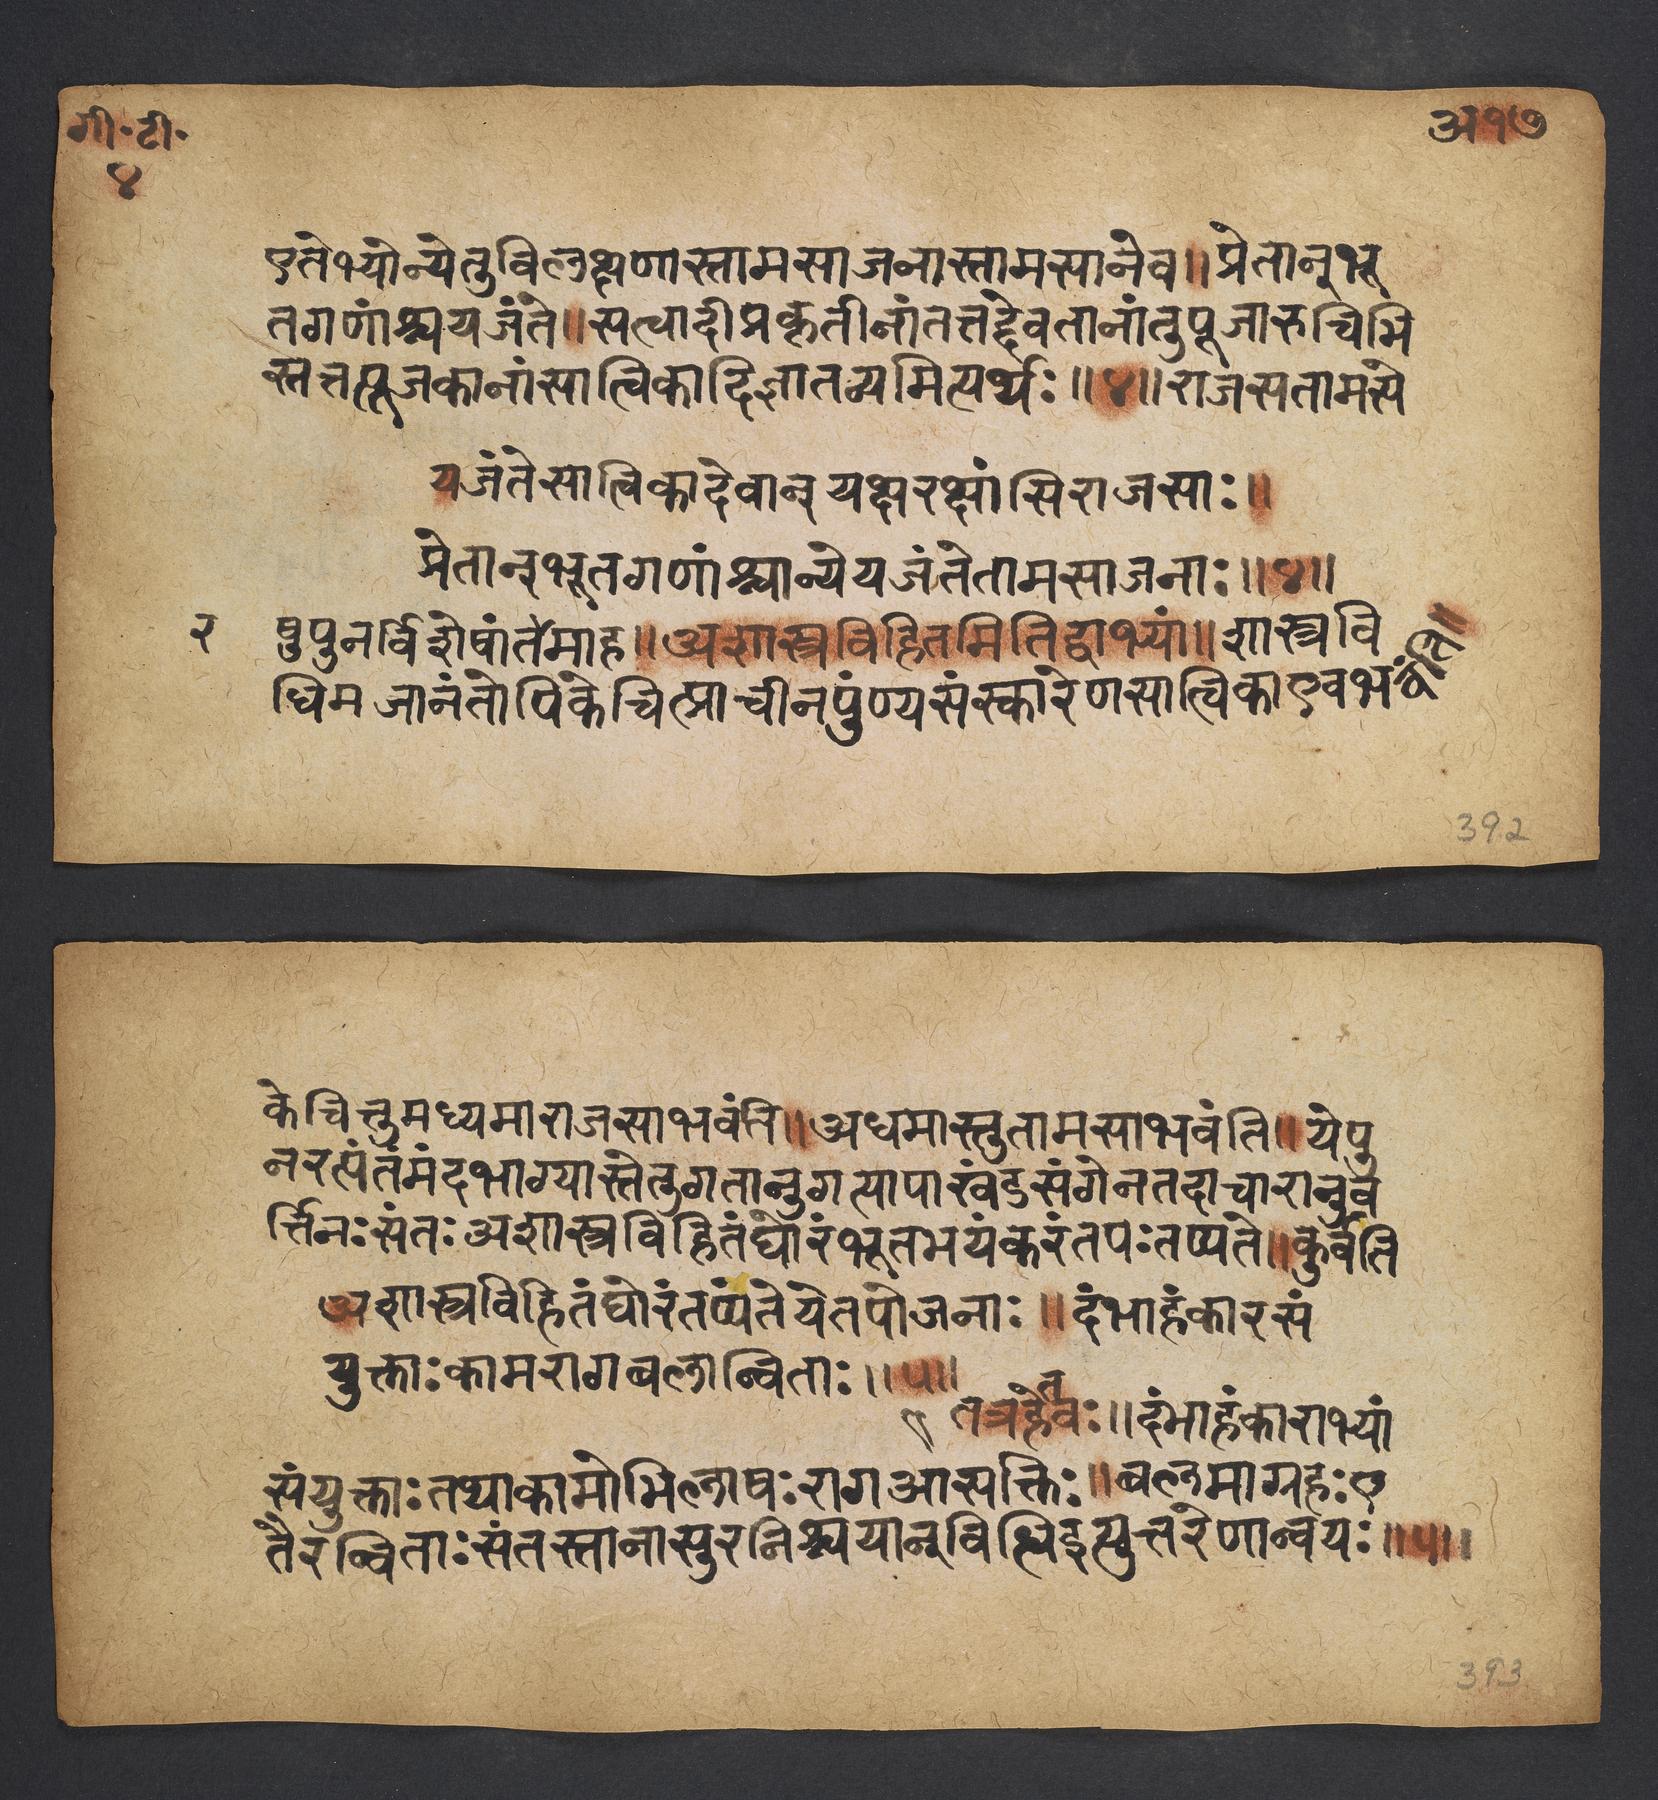 गी॰टी॰
४
अ१७
एतेभ्योन्येतुविलक्षणास्तामसाजनास्तामसानेव॥प्रेतान्भू
तगणांश्चयजंते॥सत्वादीप्रकृतीनांतत्तद्देवतानांतुपूजारुचिभि
स्तत्तत्पूजकानांसात्विकादिज्ञातव्यमित्यर्थः॥४॥राजसतामसे
यजंतेसात्विकादेवान्यक्षरक्षांसिराजसाः॥
प्रेतान्भूतगणांश्चान्येयजंतेतामसाजनाः॥४॥
र षुपुनर्विशेषांतरमाह॥अशास्त्रविहितमितिद्वाभ्यां॥शास्त्रवि
धिमजानंतोपिकेचित्प्राचीनपुंण्यसंस्कारेणसात्विकाएवभवंति॥
392
केचित्तुमध्यमाराजसाभवंति॥अधमास्तुतामसाभवंति॥येपु
नरत्यंतंमंदभाग्यास्तेतुगतानुगत्यापाखंडसंगेनतदाचारानुव
र्त्तिनःसंतःअशास्त्रविहितंघोरंभूतभयंकरंतपःतप्यंते॥कुर्वंति
अशास्त्रविहितंघोरंतप्यंतेयेतपोजनाः॥दंभाहंकारसं
युक्ताःकामरागबलान्विताः॥५॥
तत्रहेतवः॥दंभाहंकाराभ्यां
संयुक्ताःतथाकामोभिलाषःरागआसक्तिः॥बलमाग्रहःए
तैरन्विताःसंतस्तानासुरनिश्चयान्विद्धिइत्युत्तरेणान्वयः॥५॥
393